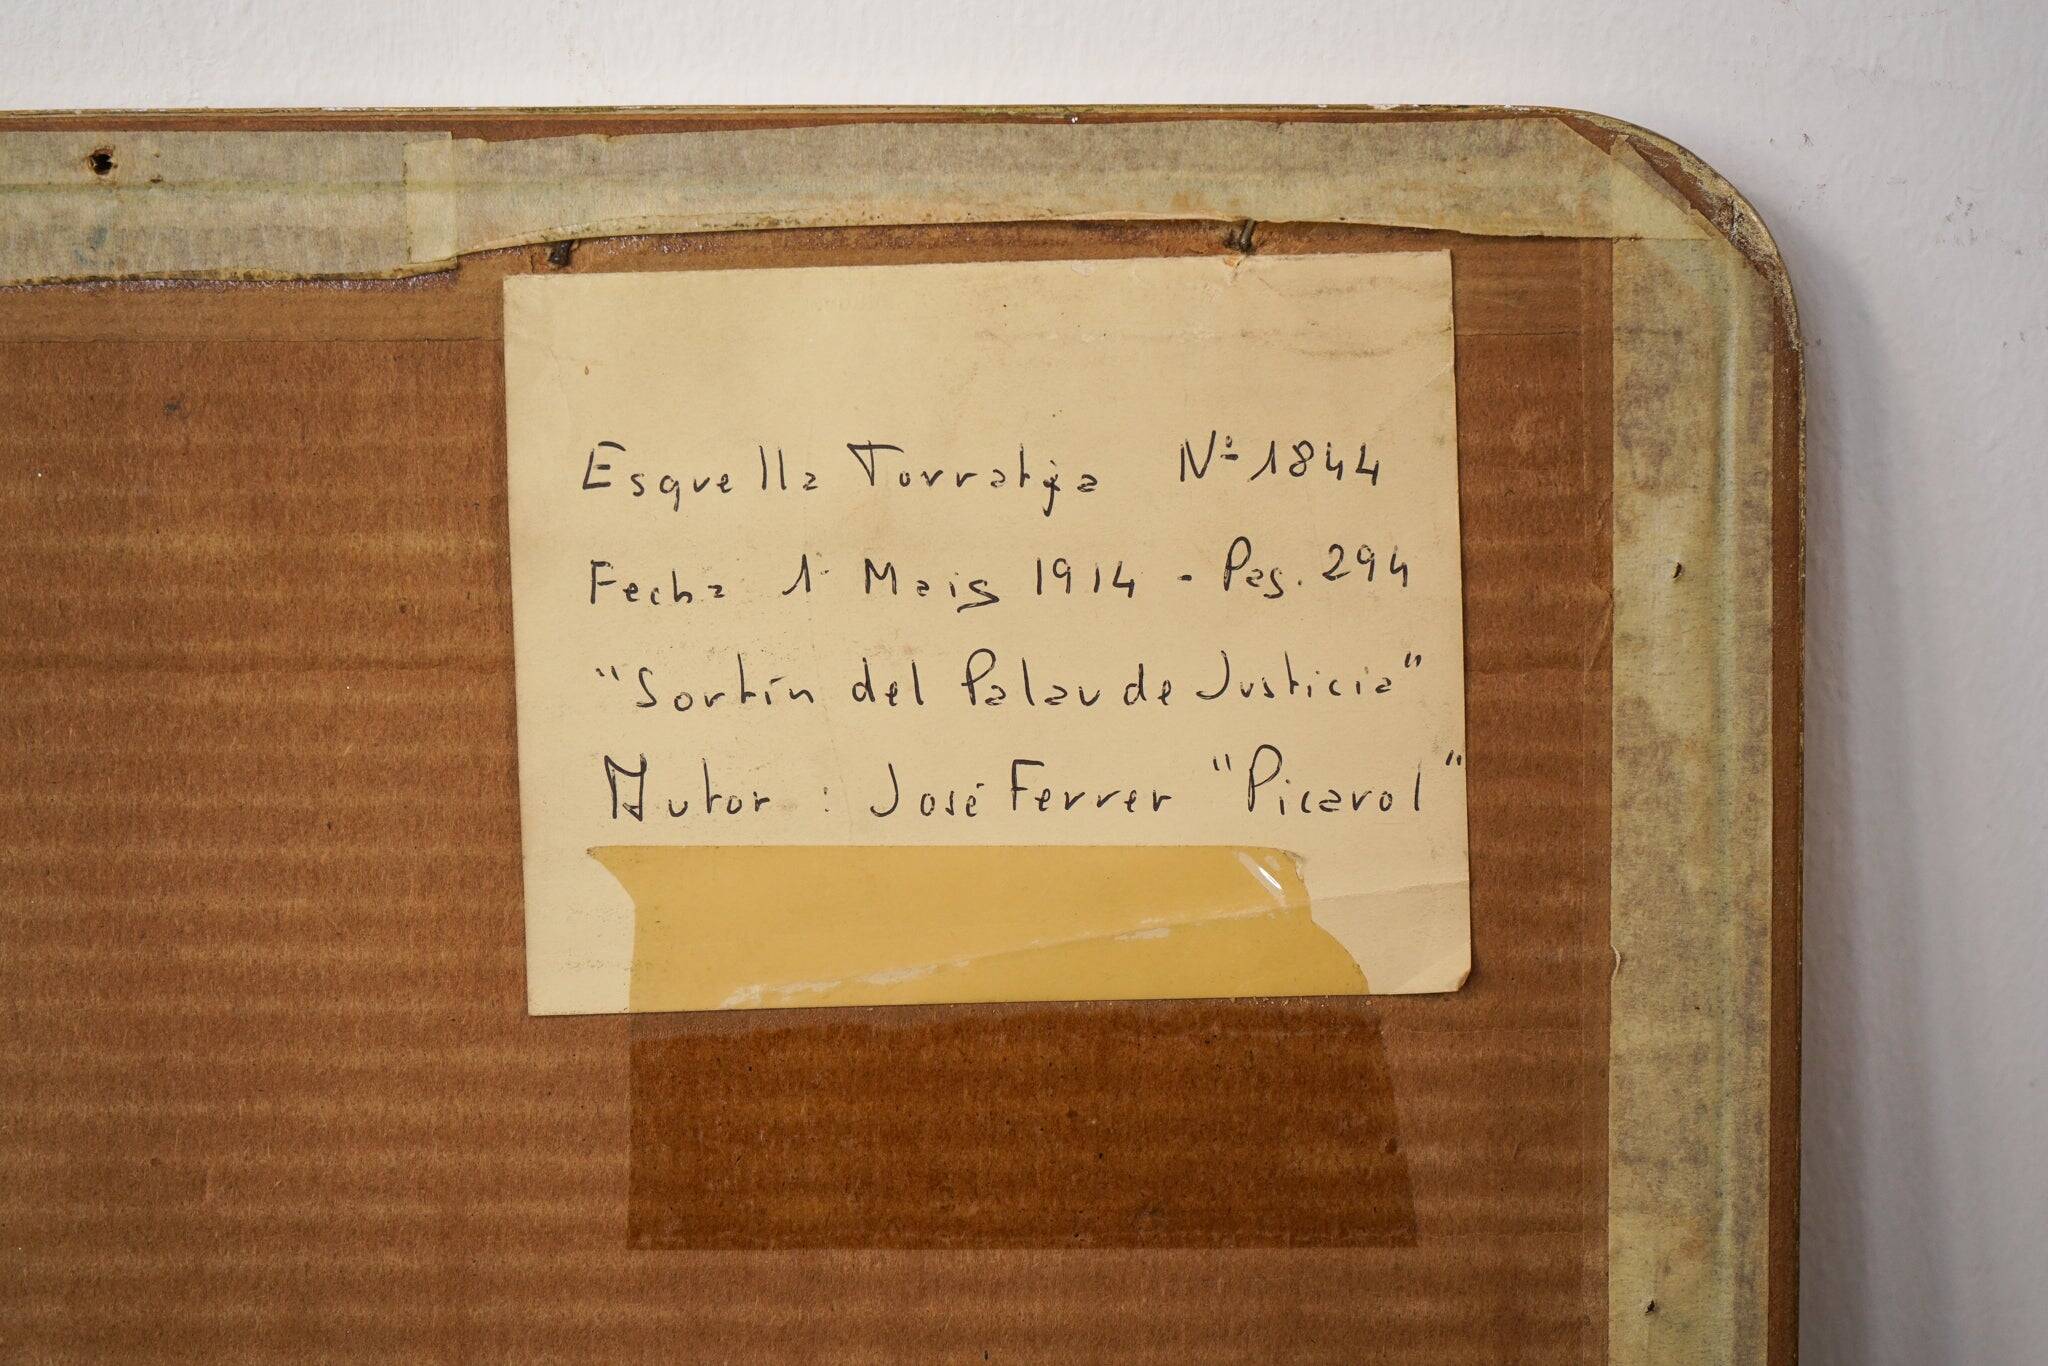 Esquella Torratxa Nº 1844
Fecha 1 Maig 1914 - Pag. 294
"Sortín del Palau de Justicia"
Autor : José Ferrer "Picarol"